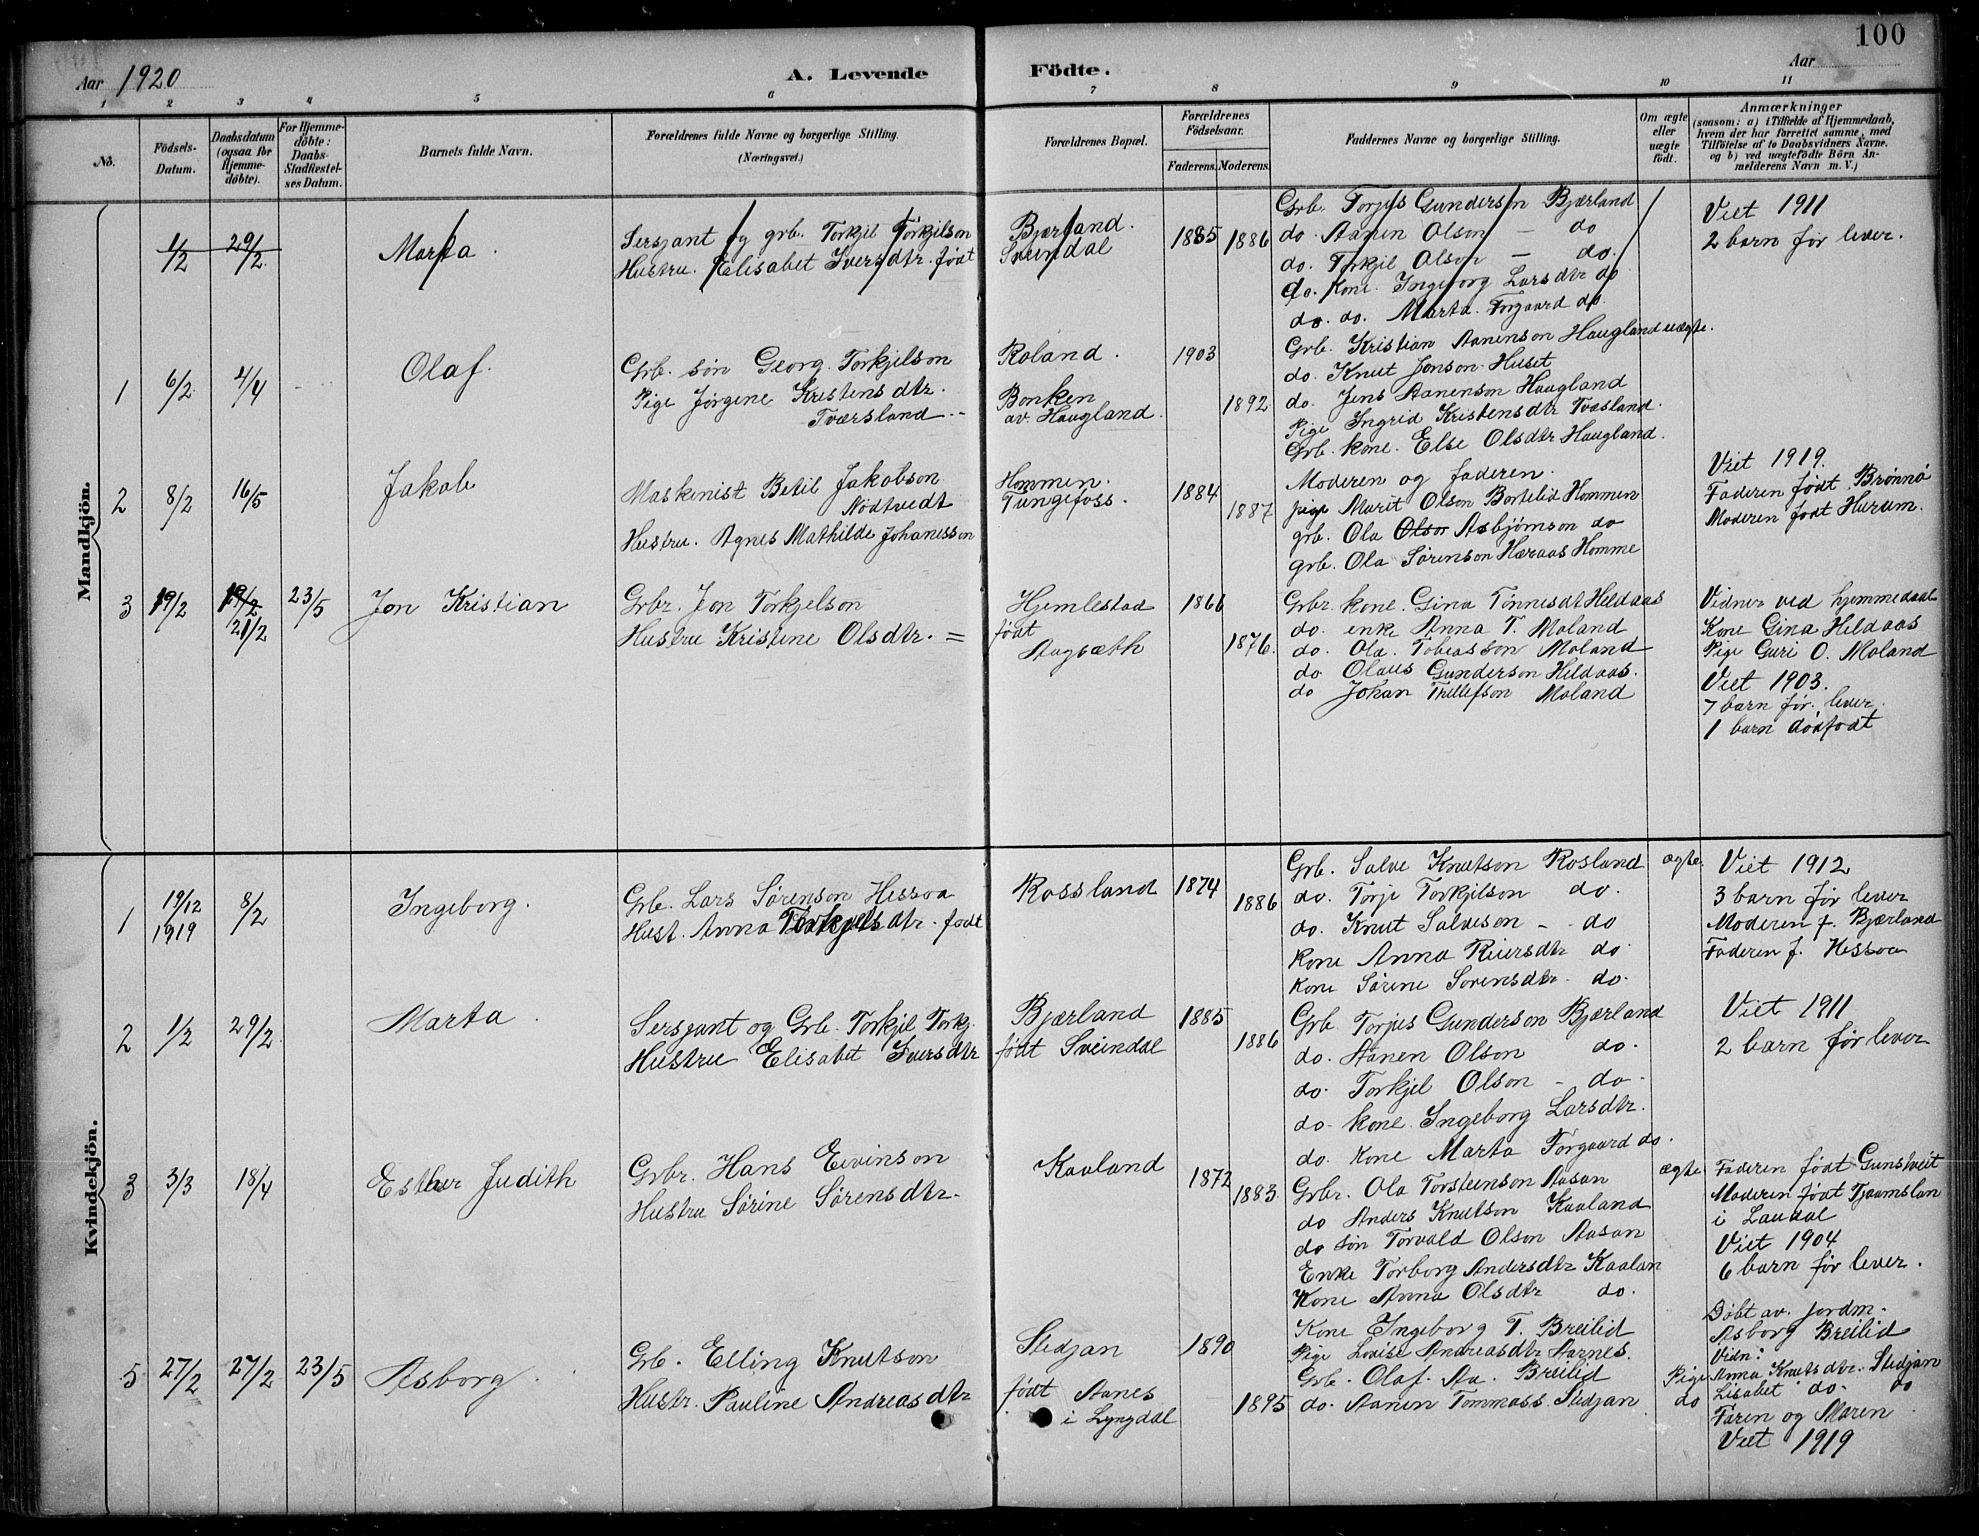 100
Aar 1920 A. Levende Födte. Aar
1 2 3 4 5 6 7 8 9 10 11
No.
Födsels-Datum.
Daabsdatum (ogsaa for Hjemme-döbte).
For Hjemme-döbte: Daabs-Stadfæstel-ses Datum.
Barnets fulde Navn.
Forældrenes fulde Navne og borgerlige Stilling. (Næringsvei.)
Forældrenes Bopæl.
Forældrenes Födselsaar.
Faderens. Moderens.
Faddernes Navne og borgerlige Stilling.
Om ægte eller uægte født.
Anmærkninger
(saasom: a) i Tilfælde af Hjemmedaab, hvem der har forrettet samme, med Tilföielse af to Daabsvidners Navne. og b) ved uægtefödte Börn An-melderens Navn m. V.)
Mandkjön.
1/2 29/2 Marta.
Sersjant og grb. Torkjil Torkjilson
Hustru. Elisabet Iversdtr. født
Bjærland.
Sveindal
1885 1886
Grb. Torjus Gunderson Bjærland
do. Aanen Olson — do
do. Torkjil Olson — do.
do. Kone. Ingeborg Larsdtr do
do. do. Marta Torgaard do.
Viet 1911
2 barn før lever.
1 6/2 4/4 Olaf.
Grb. søn Georg Torkjelson
Pige Jørgine Kristensdtr.
Tværsland --
Roland.
Bonken
av. Haugland.
1903 1892
Grb. Kristian Aanenson Haugland uægte.
do. Knut Jonson Huset
do. Jens Aanenson Haugland
Pige Ingrid Kristensdtr Tvæsland.
Grb. kone. Else Olsdtr Haugland.
2 8/2 16/5 Jakob
Maskinist Betil Jakobson
Nodtvedt
Hustru. Agnes Mathilde Johanesson
Hommen.
Tungefoss.
1884 1887
Moderen og faderen.
pige Marit Olson Bortelid Hommen
grb. Ola Olson Asbjømson do
grb. Ola Sørenson Høraas Homme
Viet 1919.
Faderen født Brønnø
Moderen født Hurum.
3 19/2 19/2 21/2 23/5 Jon Kristian
Grbr. Jon Torkjelson
Hustru Kristine Olsdtr. =
Hjemlestad
født
Augsæth
1866 1876.
Grbr. kone. Gina Tønnesdt Heldaas
do. enke Anna T. Moland
do. Ola. Tobiasson Moland
do Olaus Gunderson Heldaas.
do Johan Trellefson Moland
Vidner ved hjemmedaab
Kone Gina Heldaas
Pige Guri O. Moland
Viet 1903.
7 barn før. lever.
1 barn dødfodt
Kvindekjön.
1 19/12 1919 8/2 Ingeborg.
Grb. Lars Sørenson Hessoa
Hust. Anna Torkjelsdtr. født
Rossland 1874 1886
Grb. Salve Knutson Rosland ægte.
do. Torje Torkjilson do.
do. Knut Salveson - do
Kone Anna Reiersdtr do
Kone Sørine Sorensdtr. do.
Viet 1912
3 barn før lever
Moderen f. Bjærland
Faderen f. Hessoa
2 1/2 29/2 Marta.
Sersjant og Grb. Torkjil Torkj.
Hustru Elisabet Iversdtr
Bjærland
født Sveindal
1885 1886
Grb Torjus Gunderson Bjærland
do. Aanen Olson do.
do. Torkjel Olson - do.
do. kone. Ingeborg Larsdtr.
do. Kone Marta Torgaard do.
Viet 1911
2 barn før lever
3 3/3 18/4 Esther Judith
Grbr. Hans Eivinson
Hustru Sørine Sørensdtr.
Kaaland 1872 1883.
Grbr. Ola Torsteenson Aasan ægte
do Anders Knutson Kaaland
do søn Torvald Olson Aasan
Enke Torborg Andersdtr Kaalan
Kone Anna Olsdtr do.
Faderen født Gunstveit
Moderen født Tjaumslan
i Laudal
Viet 1904
6 barn før lever.
5 27/2 27/2 23/5 Asborg.
Grb. Elling Knutson
Hustr. Pauline Andreasdtr
Stedjan
født Aanes
i Lyngdal
1890 1895
Kone Ingeborg T. Breilid
Pige Lovise Andreasdtr Aarnes.
Grb. Olaf. Aa. Breilid
do. Aanen Tommass. Stedjan
Døbt av jordm.
Asborg Breilid
Vidn:
Pige Anna Knutsdtr. Stedjan
do Lisabet do. do
Faren og Moren
Viet 1919